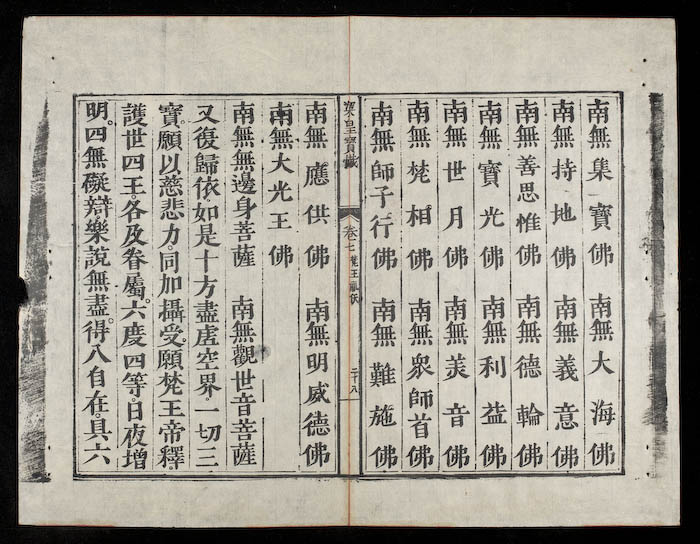 南無集寶佛 南無大海佛
南無持地佛 南無義意佛
南無善思惟佛 南無德輪佛
南無寶光佛 南無利益佛
南無世月佛 南無美音佛
南無梵相佛 南無眾師首佛
南無師子行佛 南無難施佛
梁皇寶懺 卷七 梵王 二十八
南無應供佛 南無明威德佛
南無大光王佛
南無無邊身菩薩 南無觀世音菩薩
又復歸依如是十方盡虛空界一切三
寶。願以慈悲力。同加攝受。願梵王帝釋
護世四王。各及眷屬。六度四等。日夜增
明。四無礙辯。樂說無盡。得八自在。具六